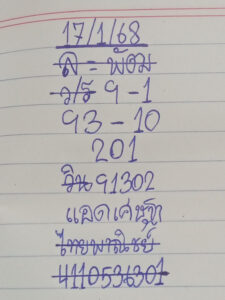 17/1/68
ล = พ้อม
ว/ร 9-1
93-10
201
วิน 91302
แอดเศรษฐา
ไทยพาณิชย์
4110536301